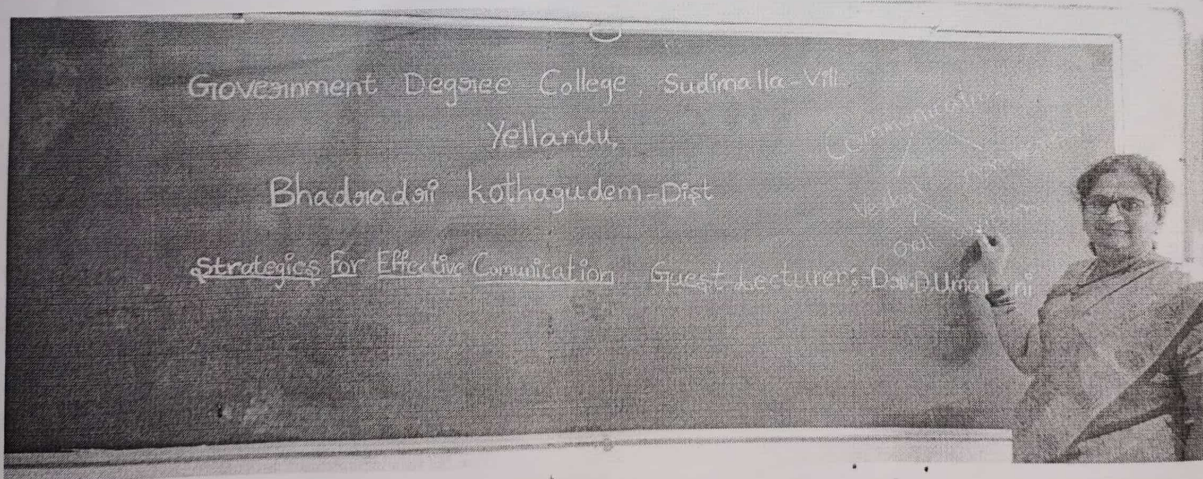 Government Degree College, Sudimalla-Vill
Yellandu,
Bhadradri kothagudem-Dist
Strategies for Effective Comunication Guest Lecturer:-Dr.D.Uma
Communication
Verbal Non verbal
oral written